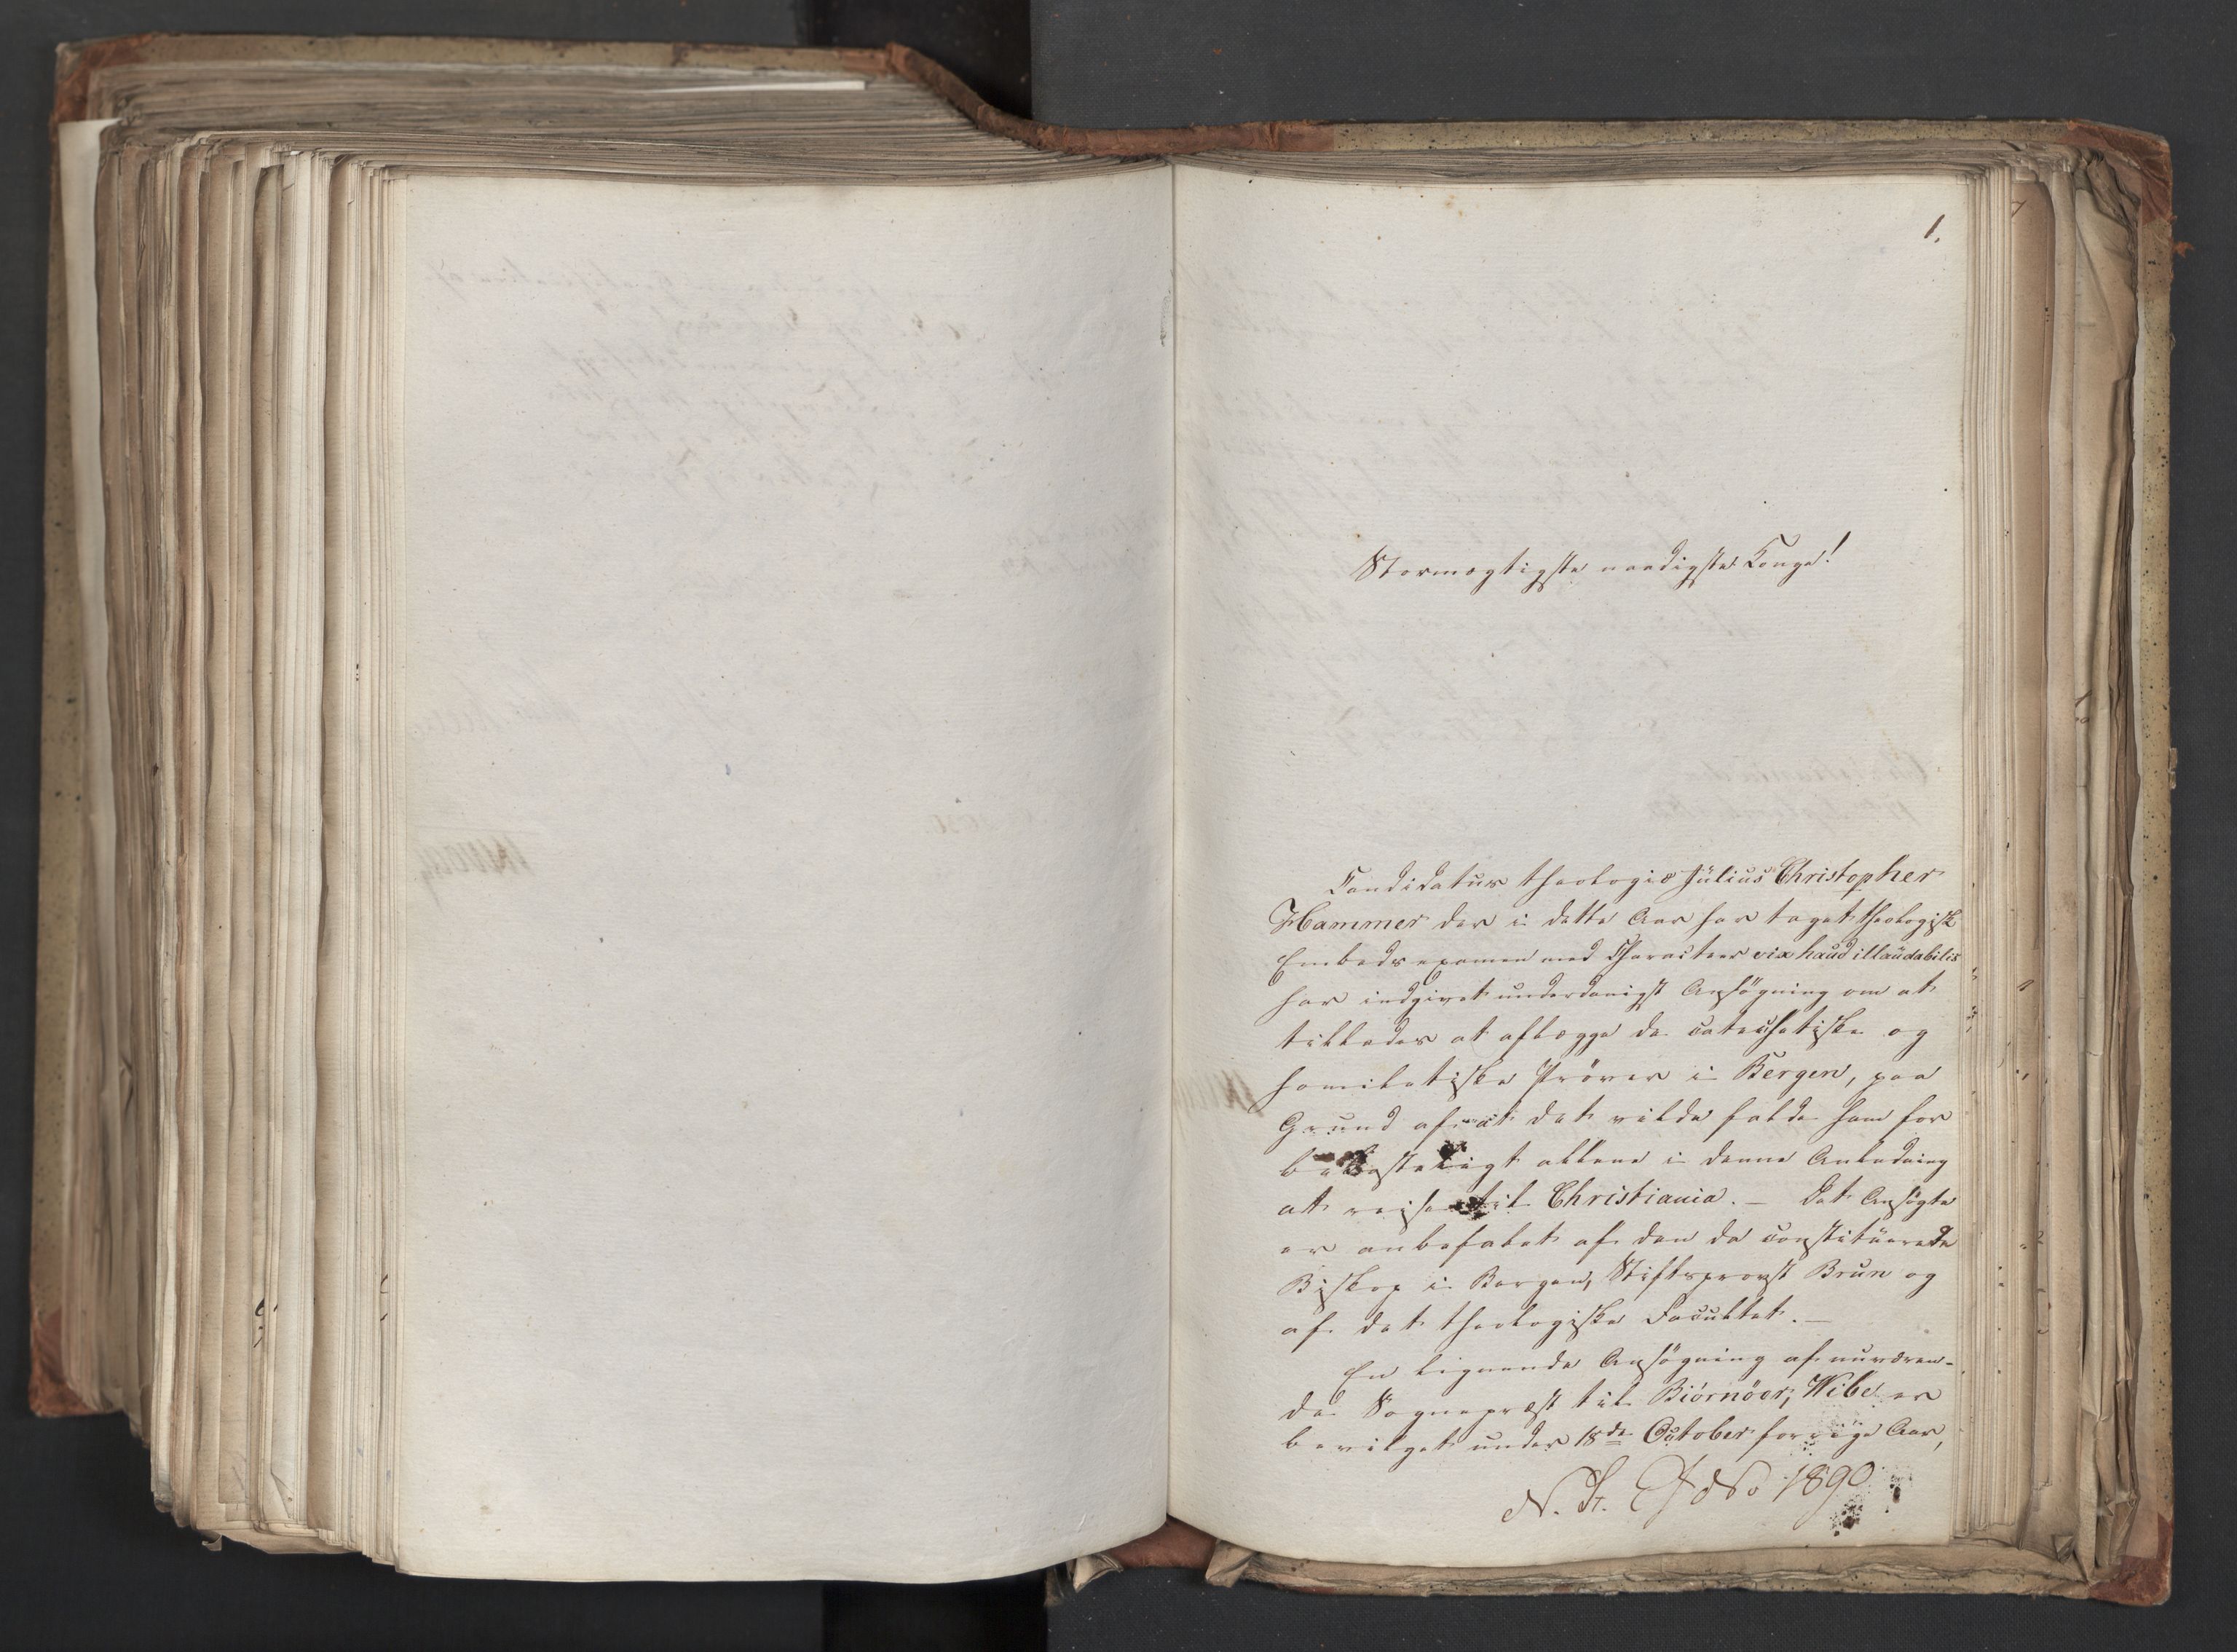 1.
Stormægtigste naadigste Konge!
Candidatus theologiæ Jülius Christopher
Hammer der i dette Aar har taget theologisk
Embedsexamen med Characteer vix haud illaudabilis
har indgivet underdanigst Ansøgning om at
tillades at aflægge de catechetiske og
homiletiske Prøver i Bergen, paa
Grund af at det vilde falde ham for
bekosteligt allene i denne Anledning
at reise til Christiania. – Det Ansøgte
er anbefalet af den da constituerede
Biskop i Bergen, Stiftsprovst Brun og
af det theologiske Facultet. –
En lignende Ansøgning af nuværen-
de Sognepræst til Biörnöer, Wibe er
bevilget under 18de October forrige Aar,
No 1890